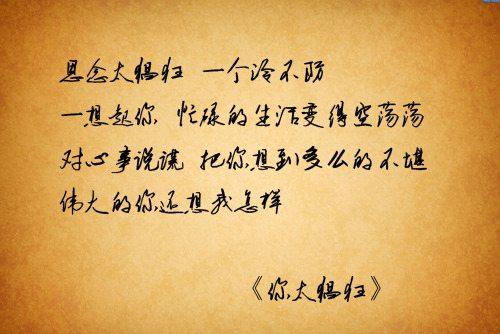 思念太猖狂 一个冷不防
一想起你 忙碌的生活变得空荡荡
对心事说谎 把你想到多么的不堪
伟大的你还想我怎样
《你太猖狂》